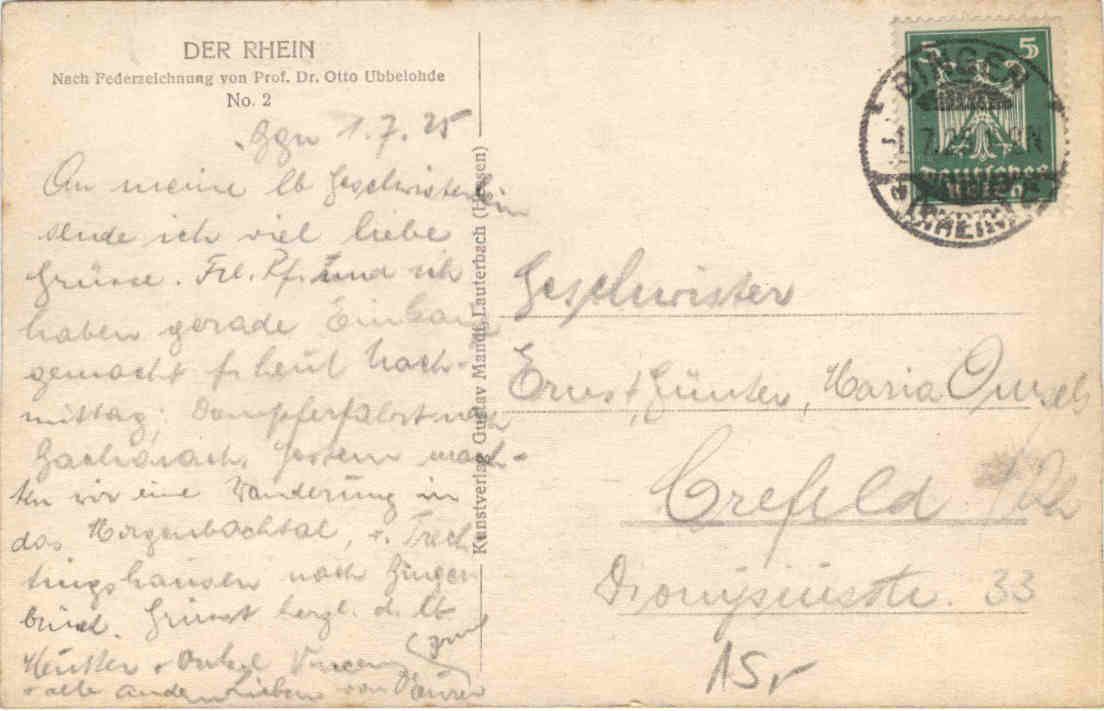 DER RHEIN
Nach Federzeichnung von Prof. Dr. Otto Ubbelohde
No. 2
1.7.25
An meine lb Geschwisterlein
sende ich viel liebe
Grüsse. Frl. Pf. und ich
haben gerade Einkauf
gemacht f. heut Nach-
mittag; Dampferfahrt nach
Bacharach. Gestern mach-
ten wir eine Wanderung in
das Morgenbachtal, v. Trech-
tingshausen nach Binger-
brück. Grüsst herzl. d. lb
Mutter + Onkel
+ alle andern Lieben von
Kunstverlag Gustav Mandt, Lauterbach (Hessen)
5 5
BINGEN
Geschwister
Ernst, Günter, Maria
Crefeld a/Rh
Dionysiusstr. 33